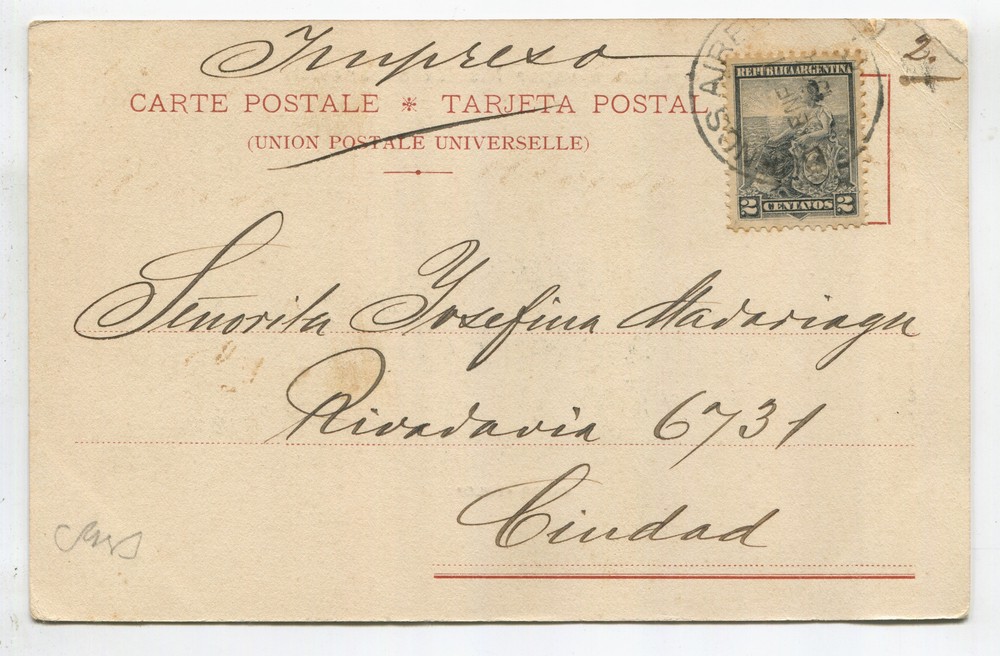 Impreso
2.
CARTE POSTALE * TARJETA POSTAL
(UNION POSTALE UNIVERSELLE)
REPUBLICA ARGENTINA
2 CENTAVOS 2
Señorita Josefina Madariaga
Rivadavia 6731
Ciudad